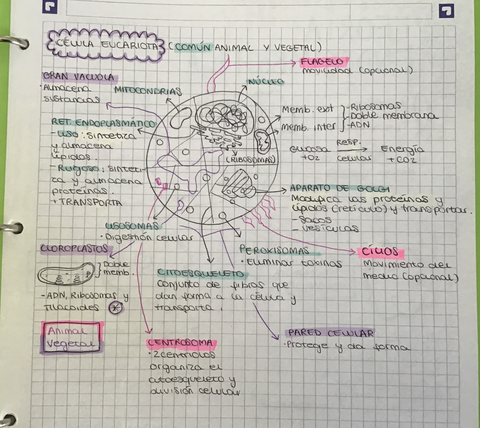 CÉLULA EUCARIOTA (COMÚN ANIMAL Y VEGETAL)
FLAGELO
movilidad (opcional)
GRAN VACUOLA
·Almacena
sustancias
MITOCONDRIAS
NÚCLEO
Memb. ext
Memb. inter
-Ribosomas
-Doble membrana
-ADN
RET. ENDOPLASMÁTICO
-LISO: Sintetiza
y almacena
lípidos.
-Rugoso: sinteti
za y almacena
proteínas.
+ TRANSPORTA
(RIBOSOMAS)
Glucosa RESP. Energía
+O2 celular +CO2
APARATO DE GOLGI
Modifica las proteínas y
lípidos (retículo) y transportar.
-Sacos
-Vesículas
LISOSOMAS
·Digestión celular
CLOROPLASTOS
Doble
memb.
-ADN, Ribosomas y
Tilacoides
PEROXISOMAS
·Eliminar toxinas
CILIOS
Movimiento del
medio (opcional)
CITOESQUELETO
Conjunto de fibras que
dan forma a la célula y
transporta.
Animal
Vegetal
CENTROSOMA
·2 centriolos
organiza el
citoesqueleto y
división celular
PARED CELULAR
·Protege y da forma